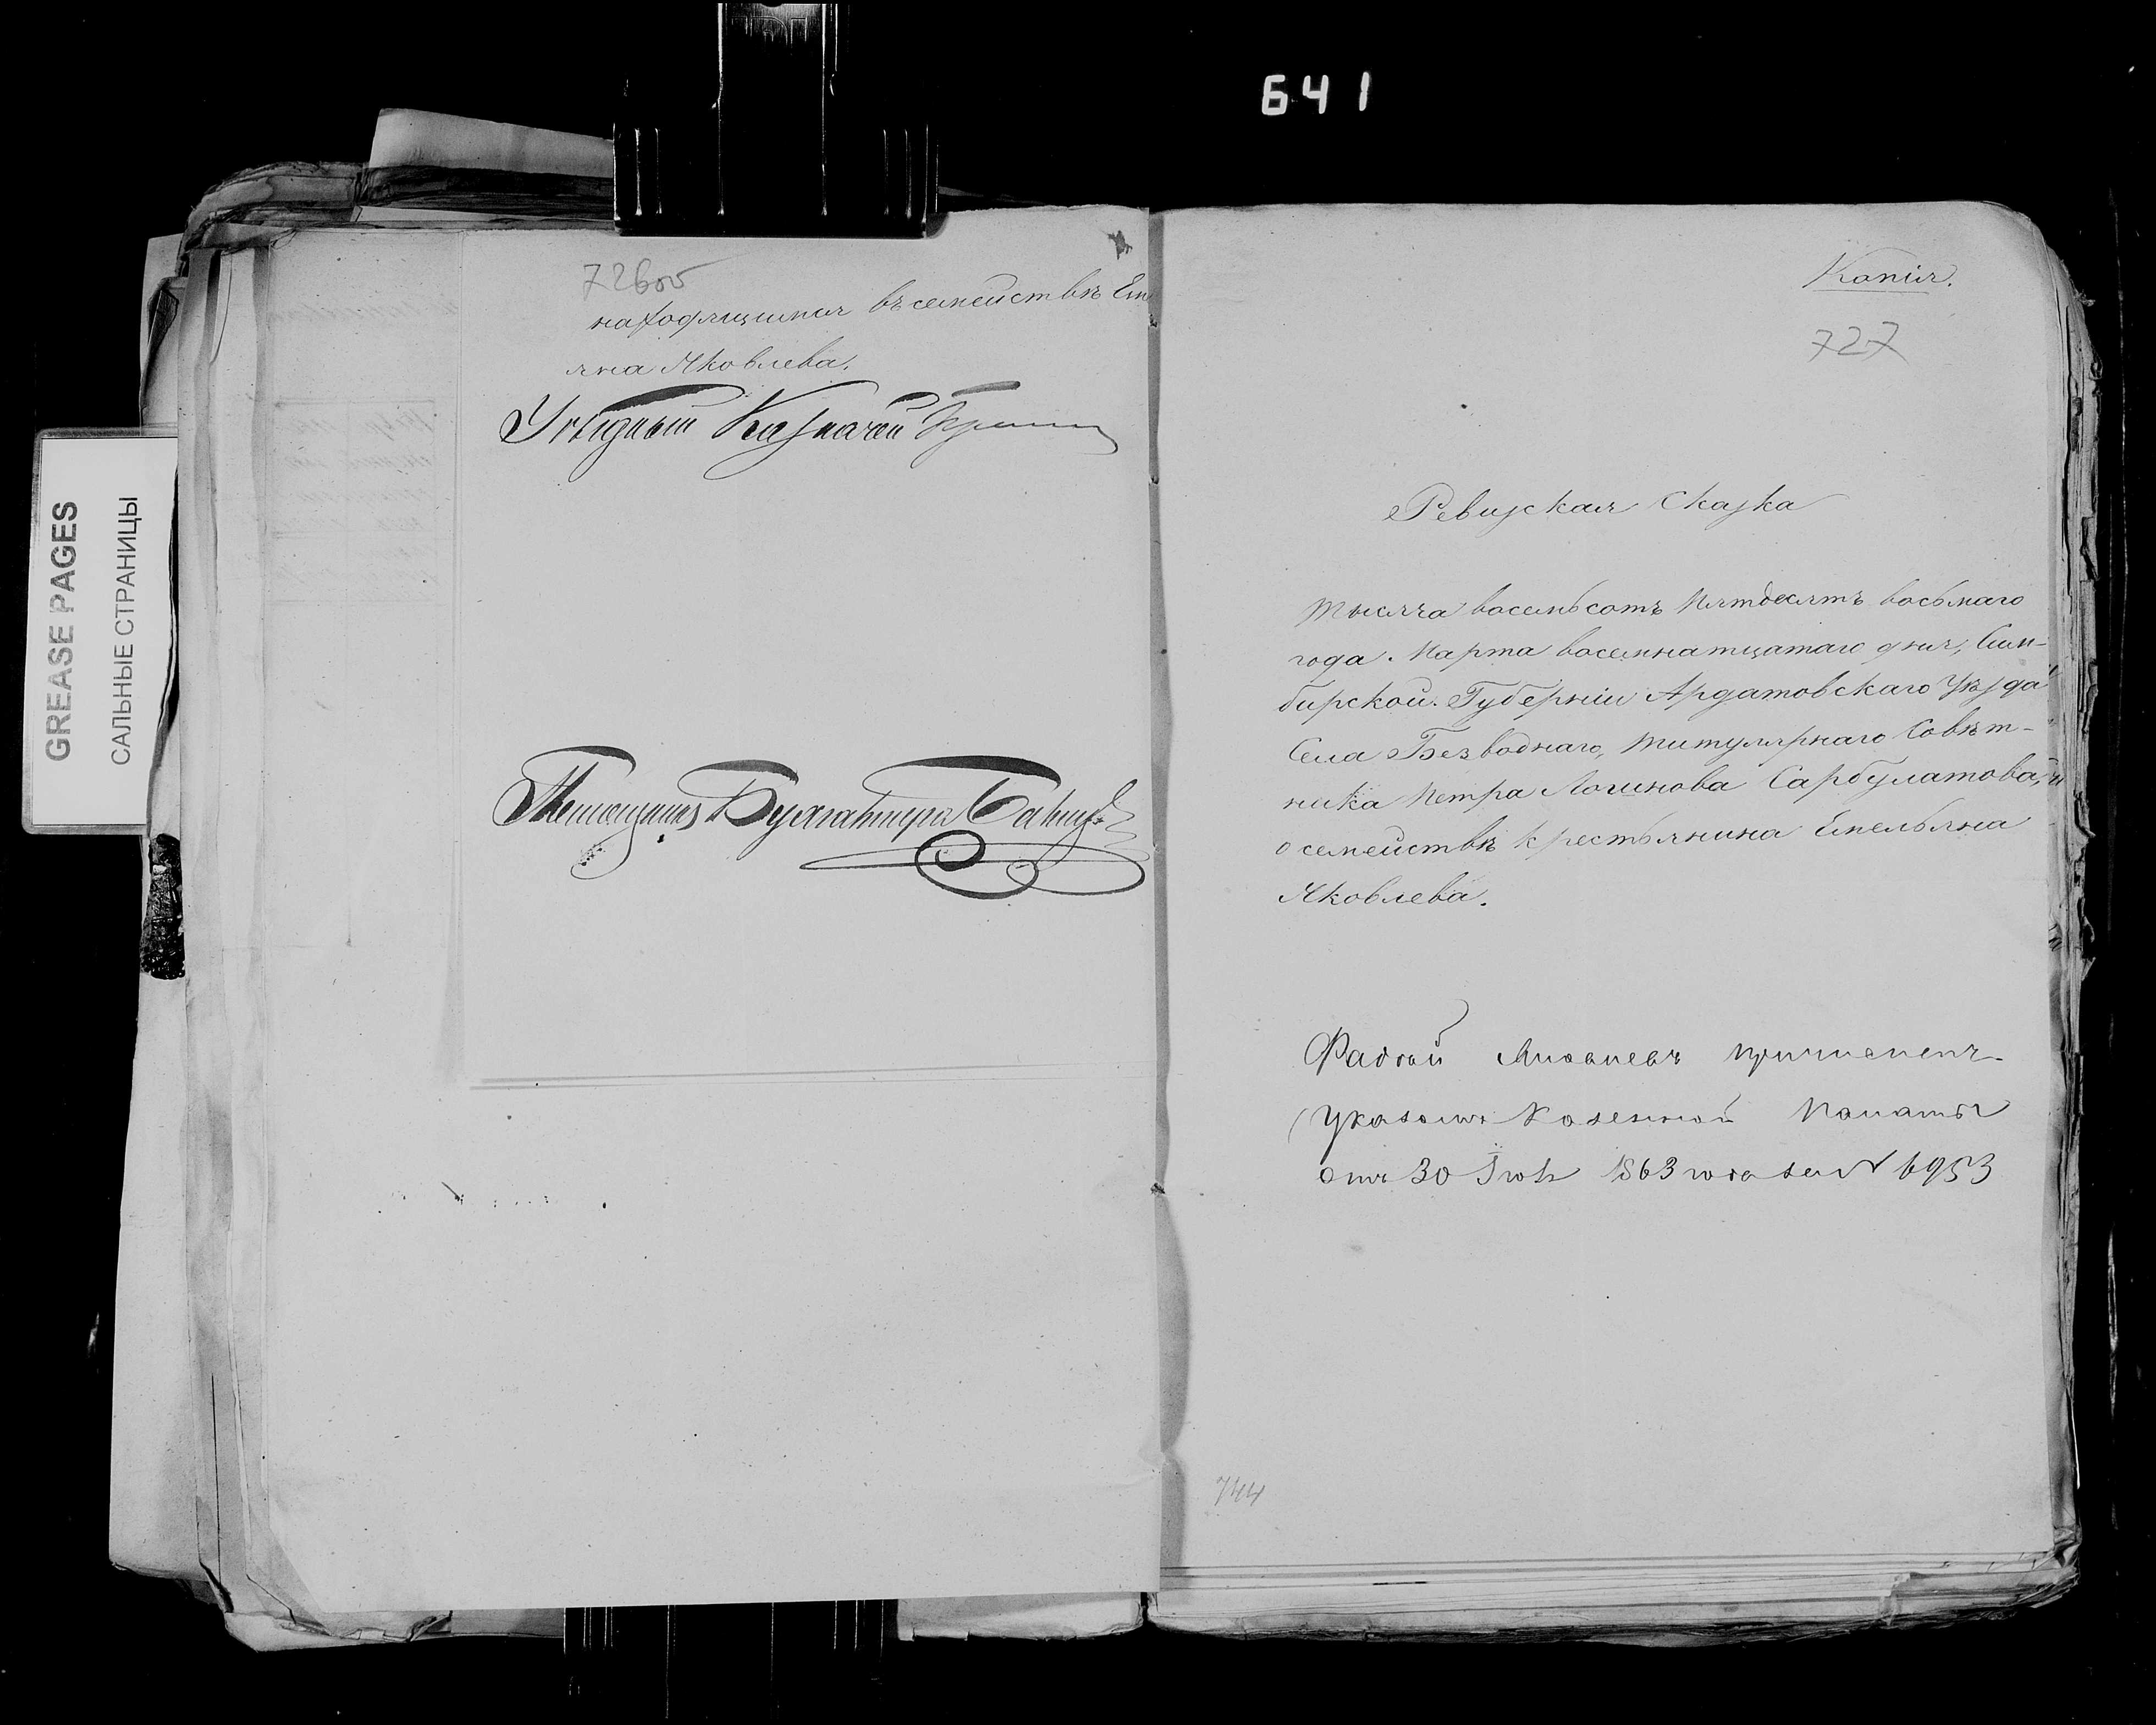 641
GREASE PAGES
САЛЬНЫЕ СТРАНИЦЫ
726об
находящимся въ семействѣ Еме
ляна Яковлева.
Уѣздный Казначей
Помощникъ Бухгалтера
Копія.
727
Ревизская Сказка
Тысяча восемьсотъ пятдесятъ восьмаго
года. Марта восемнатцатаго дня, Сим-
бирской Губерніи Ардатовскаго Уѣзда
Села Безводнаго, Титулярнаго Совѣт-
ника Петра Логинова Сарбулатова,
о семействѣ крестьянина Емельяна
Яковлева.
Фадей Яковлевъ причисленъ
Указомъ Казенной Палаты
отъ 30 1863 года за № 6953
744